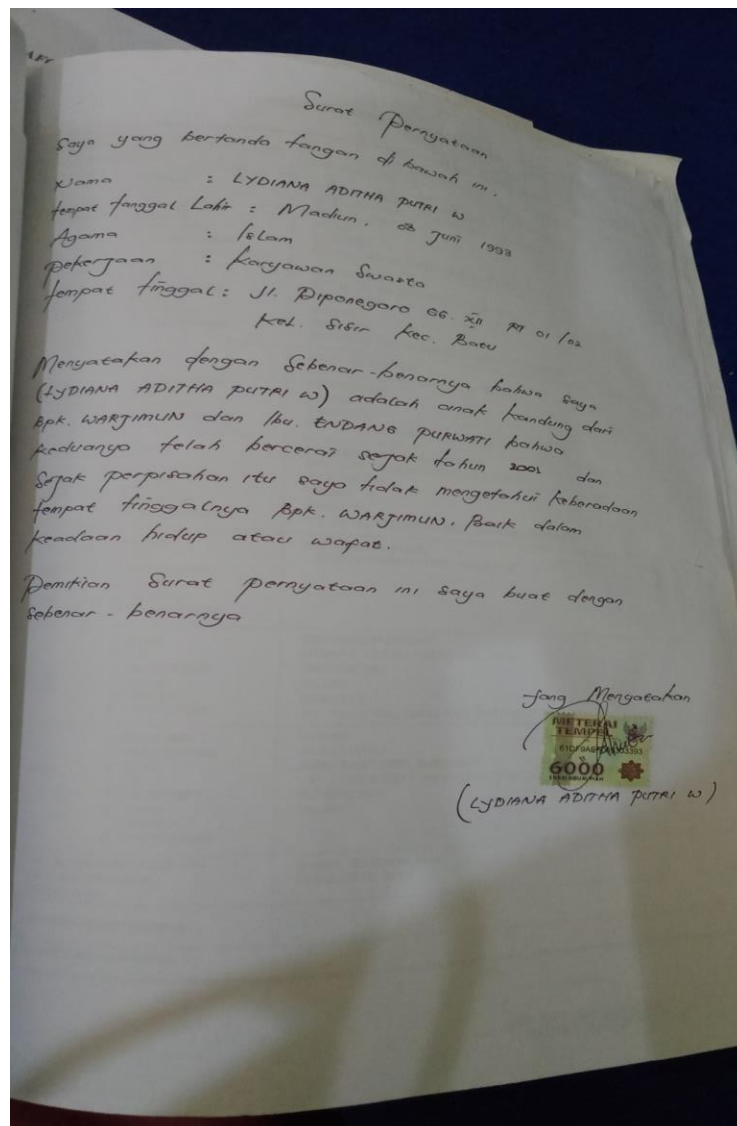 Surat Pernyataan
Saya yang bertanda tangan di bawah ini.
Nama : LYDIANA ADITHA PUTRI W
tempat tanggal Lahir : Madiun, 03 Juni 1993
Agama : Islam
pekerjaan : Karyawan Swasta
tempat tinggal : Jl. Diponegoro GG. XII RT 01/02
Kel. Sisir Kec. Batu
Menyatakan dengan Sebenar-benarnya bahwa saya
(LYDIANA ADITHA PUTRI W) adalah anak kandung dari
Bpk. WARJIMUN dan Ibu. ENDANG PURWATI bahwa
keduanya telah bercerai sejak tahun 2001 dan
Sejak perpisahan itu saya tidak mengetahui keberadaan
tempat tinggalnya Bpk. WARJIMUN. Baik dalam
keadaan hidup atau wafat.
Demikian Surat pernyataan ini saya buat dengan
sebenar - benarnya
yang Menyatakan
METERAI
TEMPEL
6000
(LYDIANA ADITHA PUTRI W)